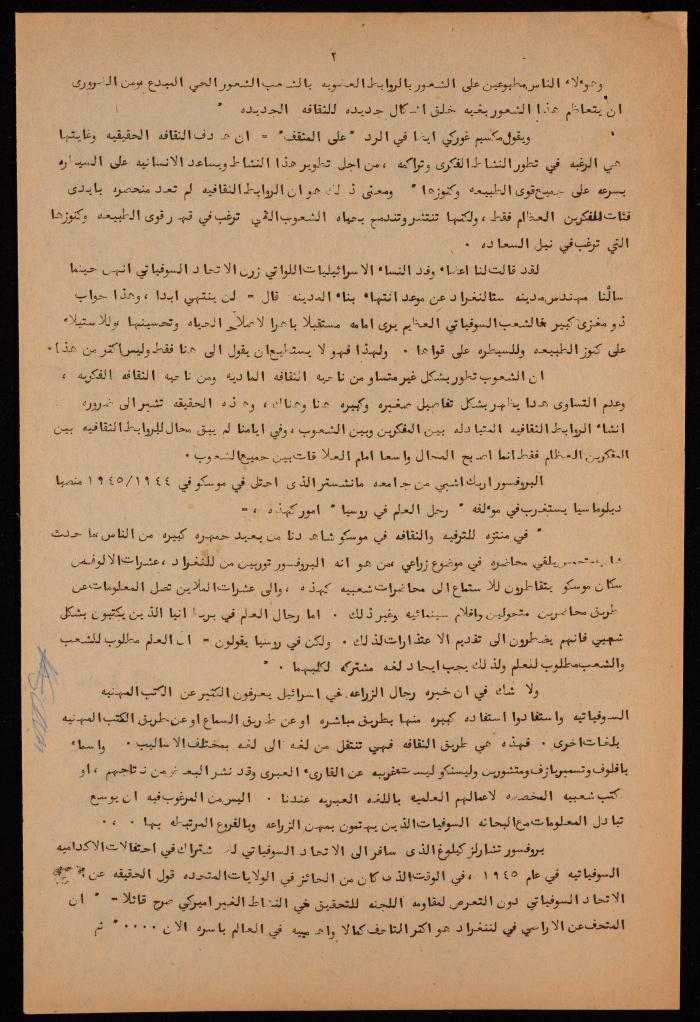 ٢
وهولاء الناس مطبوعين على الشعور بالروابط العضويه بالشعب الشعور الحي المبدع ومن الضرورى
ان يتعاظم هذا الشعور بغيه خلق اشكال جديده للثقافه الجديده "
ويقول مكسيم غوركي ايضا في الرد "على المثقف" = ان هدف الثقافه الحقيقيه وغايتها
هي الرغبه في تطور النشاط الفكرى وتراكمه ، من اجل تطوير هذا النشاط ويساعد الانسانيه على السيطره
بسرعه على جميع قوى الطبيعه وكنوزها " ومعنى ذلك هو ان الروابط الثقافيه لم تعد منحصره بايدى
فئات المفكرين العظام فقط ، ولكنها تنتشر وتندمج بحياه الشعوب التي ترغب في قهر قوى الطبيعه وكنوزها
التي ترغب في نيل السعاده .
لقد قالت لنا اعضاء وفد النساء الاسرائيليات اللواتي زرن الاتحاد السوفياتي انهن حينما
سالنا مهندس مدينه ستالنغراد عن موعد انتهاء بناء المدينه قال = لن ينتهي ابدا ، وهذا جواب
ذو مغزى كبير فالشعب السوفياتي العظيم يرى امامه مستقبلا باهرا لاصلاح الحياه وتحسينها وللاستيلاء
على كنوز الطبيعه وللسيطره على قواها . ولهذا فهو لا يستطيع ان يقول الى هنا فقط وليس اكثر من هذا .
ان الشعوب تطور بشكل غير متساو من ناحيه الثقافه الماديه ومن ناحيه الثقافه الفكريه ،
وعدم التساوى هذا يظهر بشكل تفاصيل صغيره وكبيره هنا وهناك ، وهذه الحقيقه تشير الى ضروره
انشاء الروابط الثقافيه المتبادله بين المفكرين وبين الشعوب ، وفي ايامنا لم يبق مجال للروابط الثقافيه بين
المفكرين العظام فقط انما اصبح المجال واسعا امام العلاقات بين جميع الشعوب .
البروفسور اريك اشبي من جامعه مانشستر الذى احتل في موسكو في ١٩٤٥/١٩٤٤ منصبا
دبلوماسيا يستغرب في مولفه " رجل العلم في روسيا " امور كهذه ، =
" في منتزه للترفيه والثقافه في موسكو شاهدنا من بعيد جمهره كبيره من الناس بما حدث
يلقي محاضره في موضوع زراعي ، من هو انه البروفسور توربين من للنغراد ، عشرات الالوف من
سكان موسكو يتقاطرون للاستماع الى محاضرات شعبيه كهذه ، والى عشرات الملاين تصل المعلومات عن
طريق محاضرين متجولين وافلام سينمائيه وغير ذلك . اما رجال العلم في بريطانيا الذين يكتبون بشكل
شعبي فانهم يضطرون الى تقديم الاعتذارات لذلك . ولكن في روسيا يقولون = ان العلم مطلوب للشعب
والشعب مطلوب للعلم ولذلك يجب ايجاد لغه مشتركه لكليهما . "
ولا شك في ان خيره رجال الزراعه في اسرائيل يعرفون الكثير عن الكتب المهنيه
السوفياتيه واستفادوا استفاده كبيره منها بطريق مباشره او عن طريق السماع او عن طريق الكتب المهنيه
بلغات اخرى . فهذه هي طريق الثقافه فهي تنتقل من لغه الى لغه بمختلف الاساليب . واسماء
بافلوف وتسمبريازف ومتشورين وليسنكو ليست غريبه عن القارىء العبرى وقد نشر البعض من نتاجهم ، او
كتب شعبيه المخصصه لاعمالهم العلميه باللغه العبريه عندنا . اليس من المرغوب فيه ان يوسع
تبادل المعلومات مع البحاثه السوفيات الذين يهتمون بمهن الزراعه وبالفروع المرتبطه بها . ، .
بروفسور تشارلز كيلوغ الذى سافر الى الاتحاد السوفياتي للاشتراك في احتفالات الاكداميه
السوفياتيه في عام ١٩٤٥ ، في الوقت الذى كان من الجائز في الولايات المتحده قول الحقيقه عن
الاتحاد السوفياتي دون التعرض لمقاومه اللجنه للتحقيق في النشاط الغير اميركي صرح قائلا = " ان
المتحف عن الاراضي في لننغراد هو اكثر المتاحف كمالا واهميه في العالم باسره الان .... " ثم